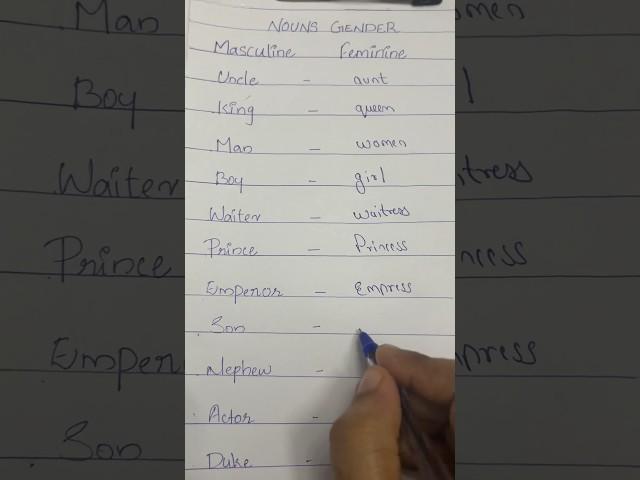 NOUNS GENDER
Masculine Feminine
Uncle - aunt
King - queen
Man - women
Boy - girl
Waiter - waitress
Prince - Princess
Emperor - Empress
Son -
Nephew -
Actor -
Duke -